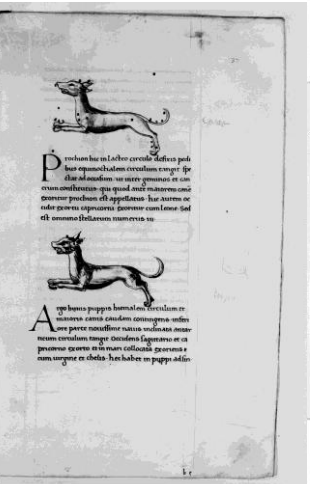 Prochion hic in lacteo circulo defixis pedi
bus equinoctialem circulum tangit spe
ctat ad occasum ut inter geminos et can
crum constitutus qui quod ante maiorem canē
exoritur prochon est appellatus hic autem oc
cidit exortu capricorni exoritur cum leone Sed
est omnino stellarum numerus
Argo huius puppis hiemalem circulum et
maioris canis caudam coniungens inferi
ore parte novissime navis inclinata antar
ticum circulum tangit Occidens sagittario et ca
pricorno exorto et in mari collocata exoriens
cum virgine et chelis hec habet in puppi ad sin